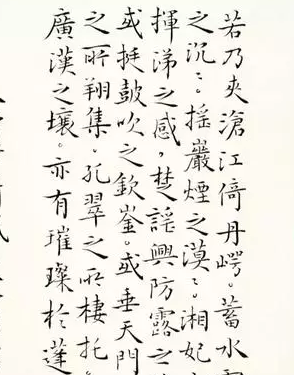 若乃夾滄江倚丹崿。蓄水
之沉〻。摇巖煙之漠〻。湘妃
揮涕之感，楚謠興防露之
或挺鼓吹之欽崟。或垂天門
之所翔集。孔翠之所棲托。
廣漢之壤。亦有璀璨於蓬